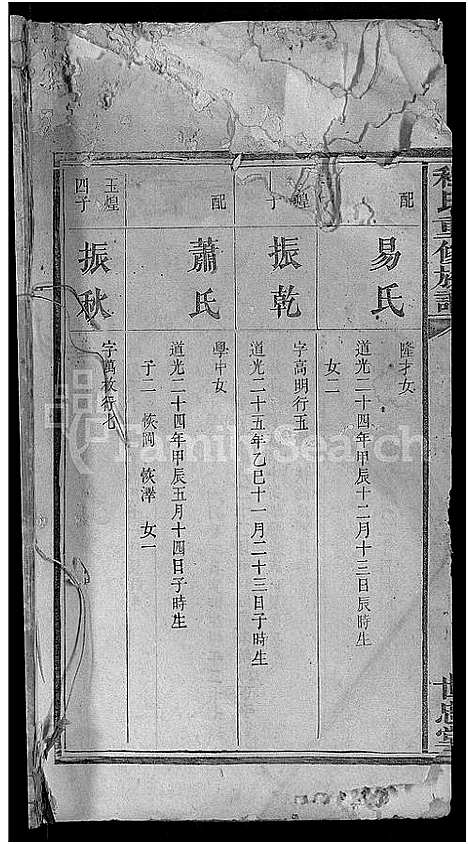 程氏重修族譜
世忠堂
配
易氏
隆才女
道光二十四年甲辰十二月十三日辰時生
女二
子
振乾
字高明行五
道光二十五年乙巳十一月二十三日子時生
配
蕭氏
學中女
道光二十四年甲辰五月十四日子時生
子二 恢閎 恢澤 女一
玉煌
四子
振秋
字萬枚行七
FamilySearch